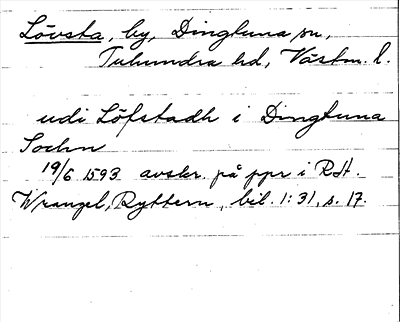 Lövsta, by, Dingtuna sn,
Tuhundra hd, Västm. l.
udi Löfstadh i Dingtuna
Sochn
19/6 1593 avskr. på ppr i RA.
Wrangel, Ryttern, bil. 1:31, s. 17.